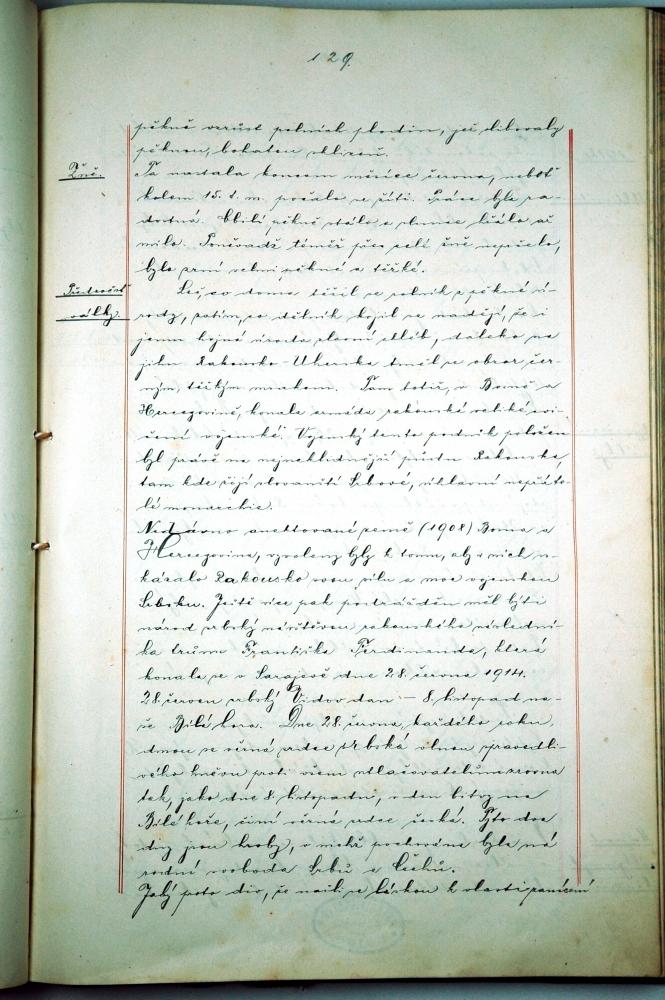 129.
pěkně vzrůst polních plodin, jež slibovaly
pěknou, bohatou sklizeň.
Žně.
Ta nastala koncem měsíce června, neboť
kolem 15. t. m. počalo se žíti. Práce byla ra-
dostná. Obilí pěkně stálo a slunce hřálo až
milo. Poněvadž téměř přes celé žně nepršelo,
bylo zrní velmi pěkné a těžké.
Předzvěst
války.
Leč, co doma těšil se rolník z pěkné ú-
rody, zatím, co dělník kojil se nadějí, že i
jemu hojná úroda zlevní chléb, daleko na
jihu Rakousko-Uherska tměl se obzor čer-
ným, těžkým mrakem. Tam totiž, v Bosně a
Hercegovině, konala armáda rakouská veliké cvi-
čení vojenské. Vojenský tento podnik položen
byl právě na nejneklidnější půdu Rakouska,
tam kde žijí slovanští Srbové, úhlavní nepřáte-
lé monarchie.
Nedávno anektované země (1908) Bosna a
Hercegovina, zvoleny byly k tomu, aby v nich u-
kázalo Rakousko svou sílu a moc vojenskou
Srbsku. Ještě více pak postrážděn měl býti
národ srbský návštěvou rakouského následní-
ka trůnu Františka Ferdinanda, která
konala se v Sarajevě dne 28. června 1914.
28. červen srbský Vidov dan – 8. listopad na-
še Bílá hora. Dne 28. června, každého roku,
dmou se věrná srdce srbská vlnou spravedli-
vého hněvu proti všem utlačovatelům zrovna
tak, jako dne 8. listopadu, v den bitvy na
Bílé hoře, činí věrná srdce česká. Tyto dva
dny jsou hroby, v nichž pochována byla ná
rodní svoboda Srbů a Čechů.
Jaký proto div, že našli se láskou k vlasti